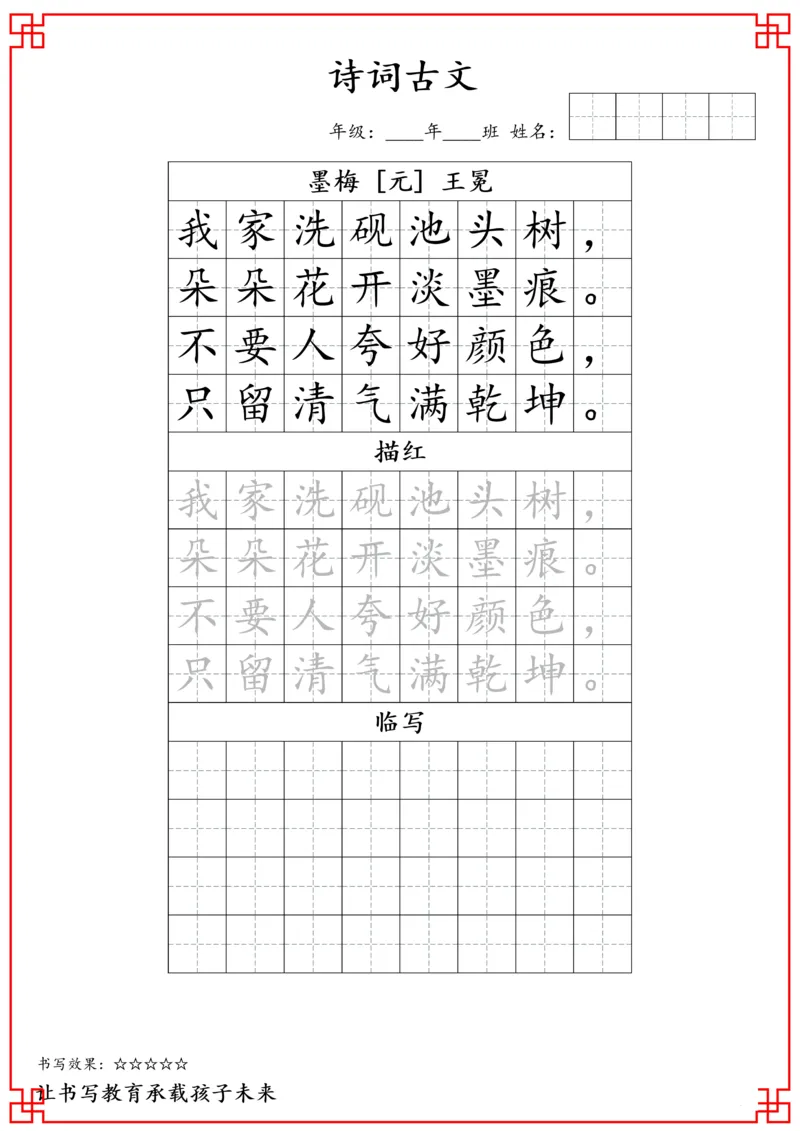 诗词古文
年级：____年____班 姓名：
墨梅 [元] 王冕
我家洗砚池头树，
朵朵花开淡墨痕。
不要人夸好颜色，
只留清气满乾坤。
描红
我家洗砚池头树，
朵朵花开淡墨痕。
不要人夸好颜色，
只留清气满乾坤。
临写
书写效果：☆☆☆☆☆
让书写教育承载孩子未来